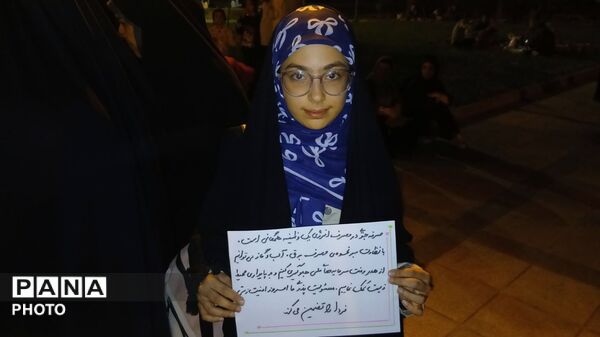 صرفه‌جویی در مصرف انرژی یک وظیفه همگانی است.
با نظارت بر نحوه‌ی مصرف برق، آب و گاز می‌توانیم
از هدر رفت سرمایه‌های ملی جلوگیری کنیم و به پایداری محیط
زیست کمک نماییم. مسئولیت پذیری ما امروز امنیت
فردا را تضمین می‌کند
PANA
PHOTO